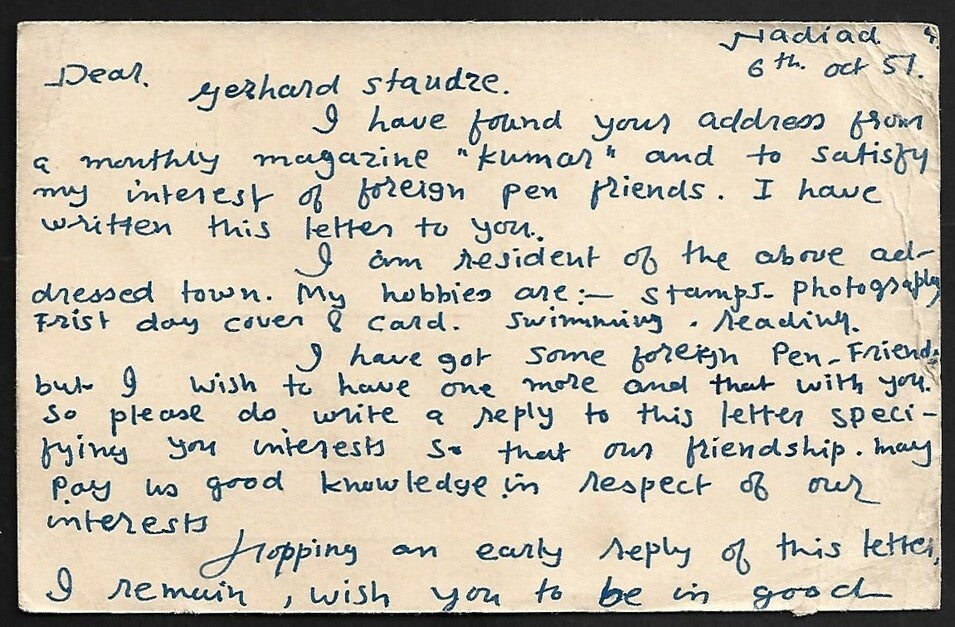 Nadiad
6th. oct 57.
Dear.
Gerhard Staudze.
I have found your address from
a monthly magazine "kumar" and to satisfy
my interest of foreign pen friends. I have
written this letter to you.
I am resident of the above ad-
dressed town. My hobbies are:- stamps- photography
Frist day cover & card. swimming. reading.
I have got some foreign Pen-Friends
but I wish to have one more and that with you.
So please do write a reply to this letter speci-
fying you interests so that our friendship. may
pay us good knowledge in respect of our
interests
Hopping an early reply of this letter,
I remain, wish you to be in good